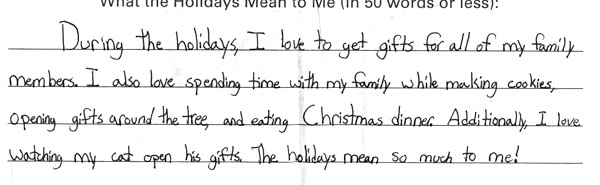 What the Holidays Mean to Me (in 50 words or less):
During the holidays, I love to get gifts for all of my family
members. I also love spending time with my family while making cookies,
opening gifts around the tree, and eating Christmas dinner. Additionally, I love
watching my cat open his gifts. The holidays mean so much to me!